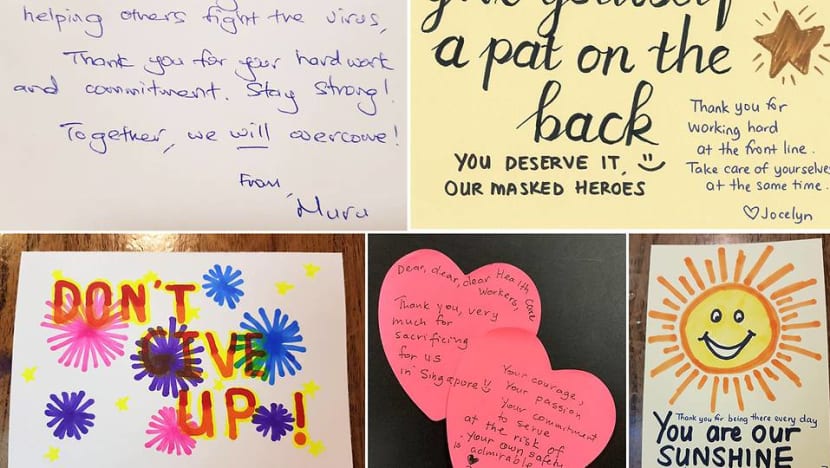 helping others fight the virus,
Thank you for your hardwork
and commitment. Stay Strong!
Together, we will overcome!
From,
Muru
give yourself
a pat on the
back
YOU DESERVE IT,
OUR MASKED HEROES
Thank you for
working hard
at the front line.
Take care of yourselves
at the same time.
Jocelyn
DON'T
GIVE
UP!
Dear, dear, dear Health care
Workers,
Thank you, very
much for
sacrificing
for us
in Singapore
Your courage,
Your passion
Your commitment
to serve
at the risk of
your own safety
is admirable
Thank you for being there every day
You are our
SUNSHINE